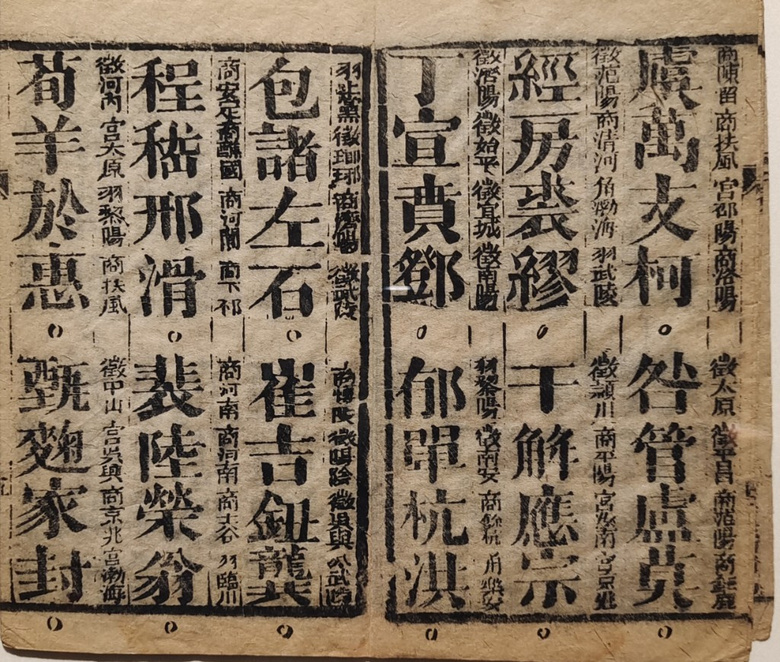 商陳留 商扶風 宮邵陽 商洛陽 徵太原 徵平昌 商范陽 商鉅鹿
虞萬支柯 昝管盧莫
徵范陽 商清河 角渤海 羽武陵 徵潁川 商平陽 宮汝南 宮京兆
經房裘繆 干解應宗
徵濟陽 徵始平 徵宣城 徵南陽 羽黎陽 徵南安 商餘杭 角樂安
丁宣賁鄧 郁單杭洪
羽上黨 徵瑯琊 商濟陽 商博陵 徵吳興
包諸左石 崔吉鈕龔
商安定 商譙國 商河間 商下邳 商河南 商河南 商上谷 羽臨川
程嵇邢滑 裴陸榮翁
徵河內 宮太原 羽黎陽 商扶風 徵中山 宮吳興 商京兆 宮渤海
荀羊於惠 甄麴家封